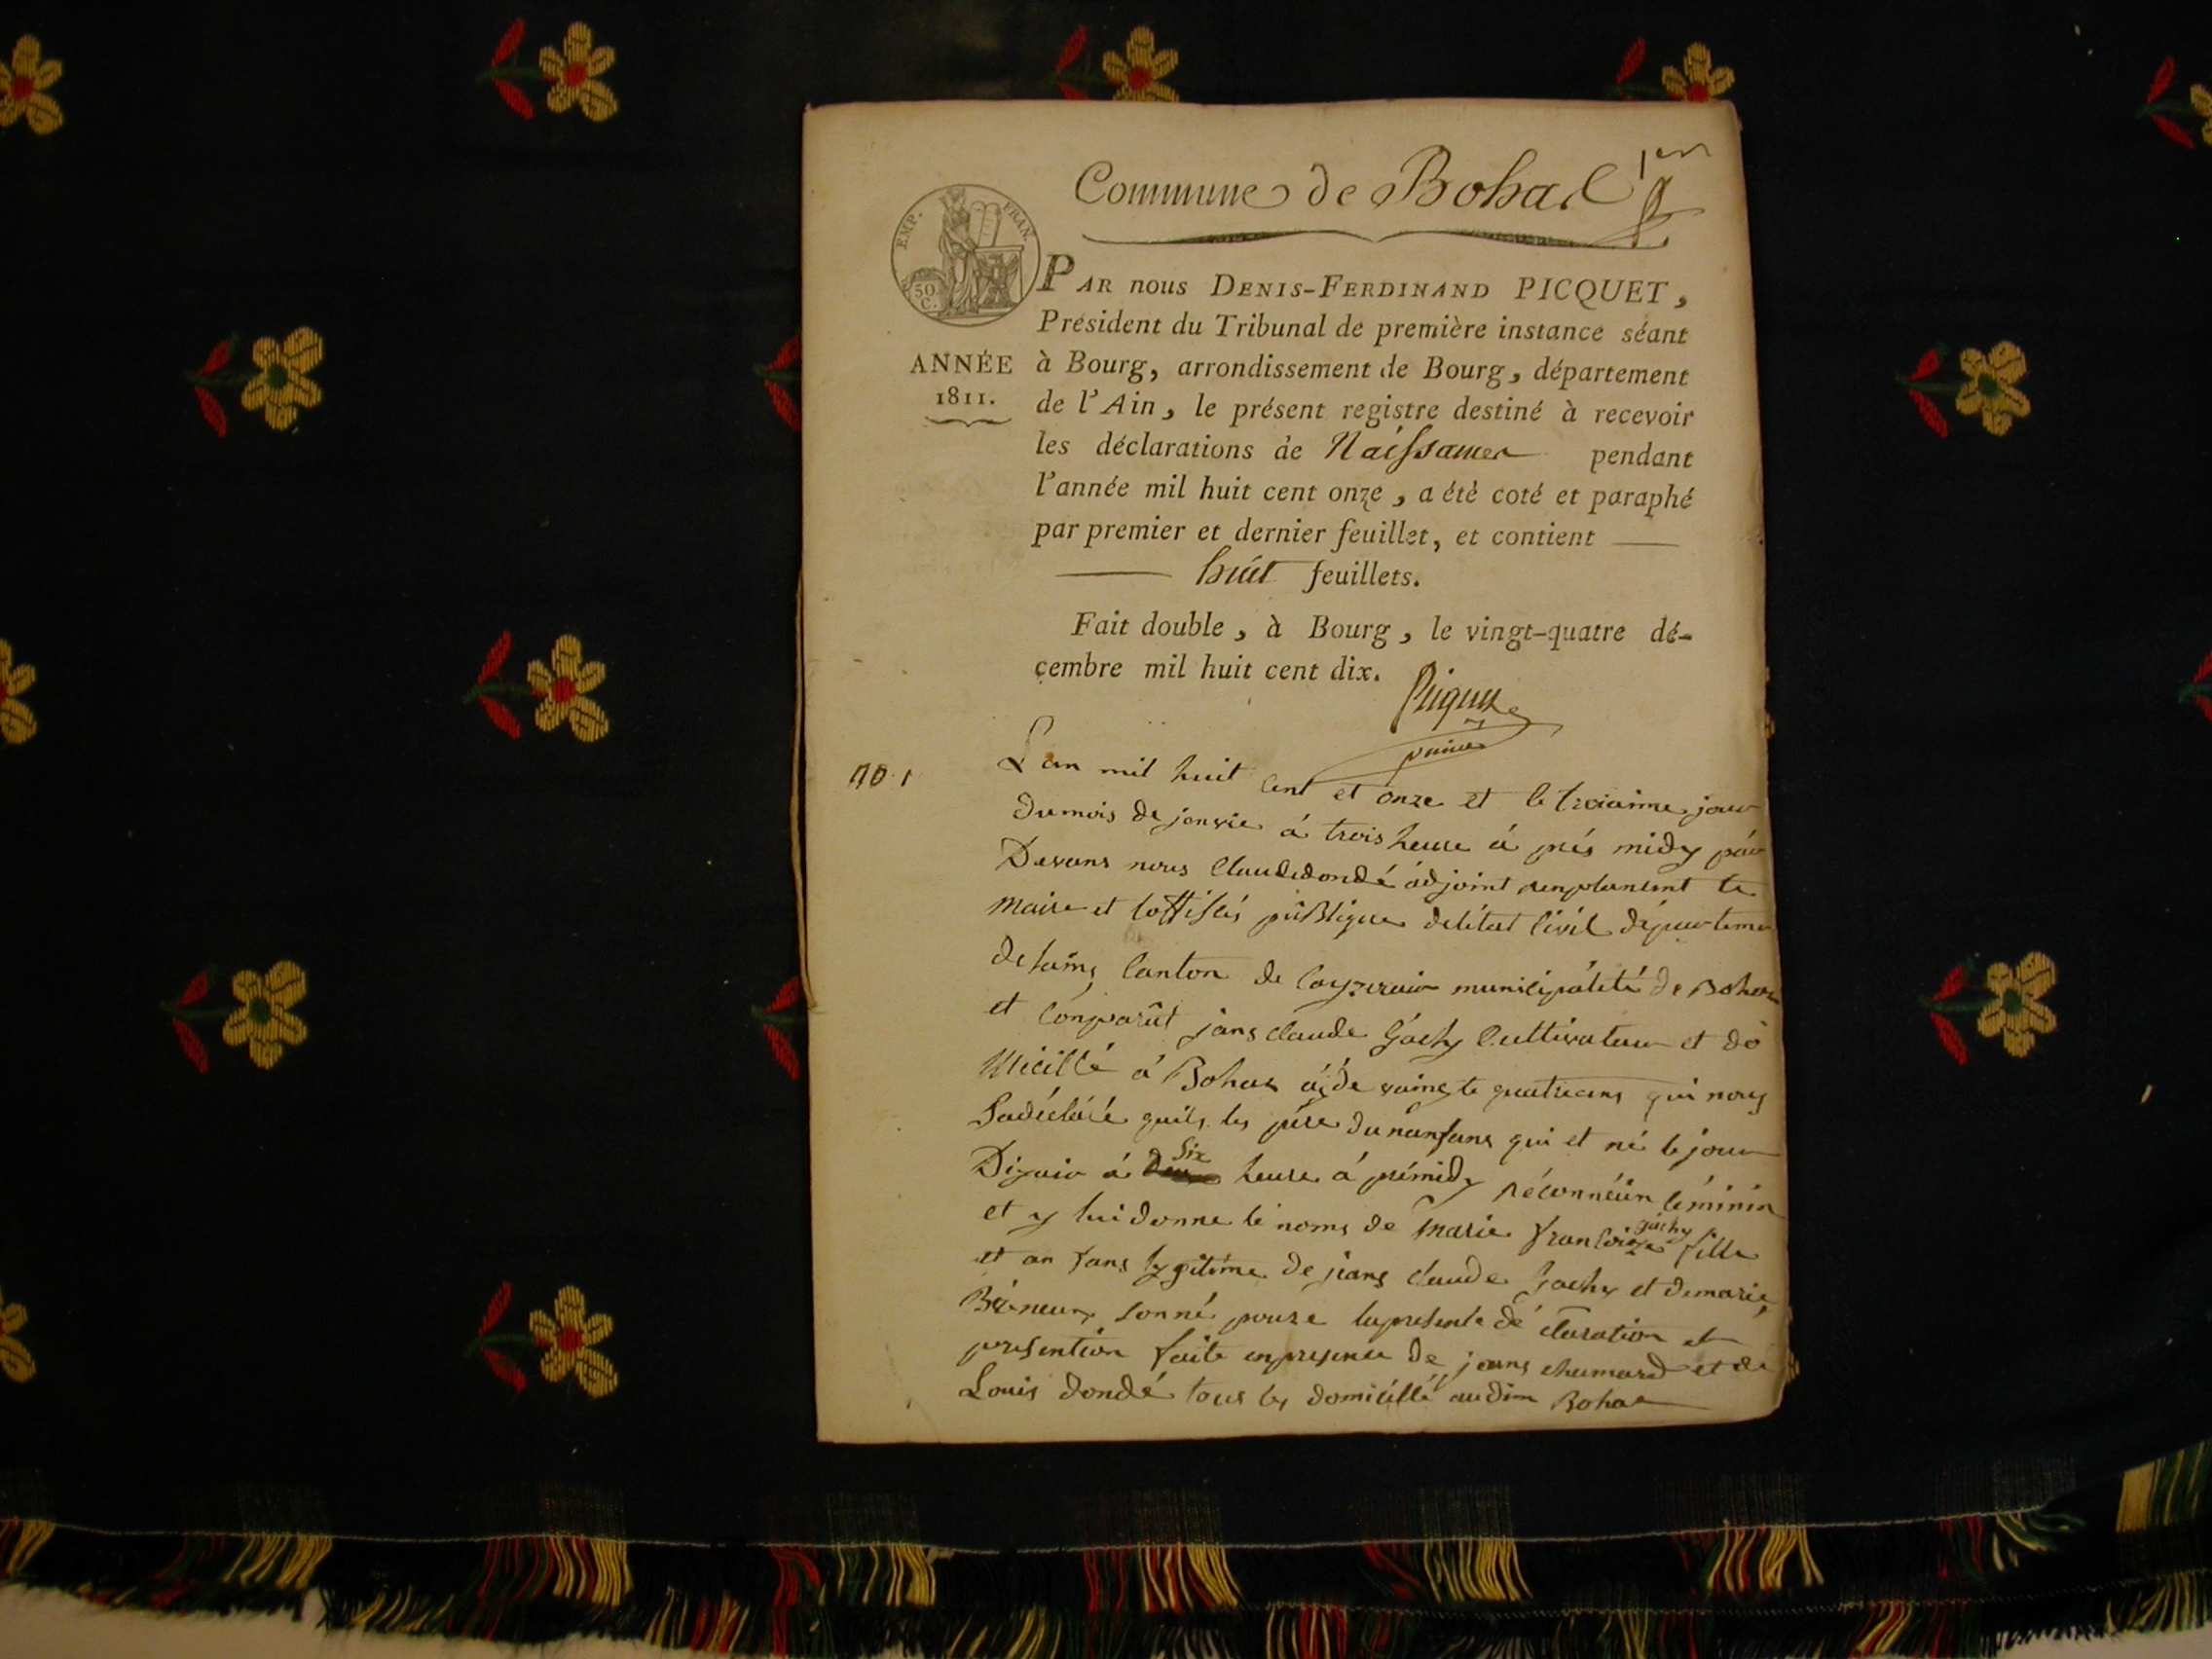 Commune de Bohas
1er
EMP. FRAN.
50 C.
PAR nous DENIS-FERDINAND PICQUET,
Président du Tribunal de première instance séant
ANNÉE
1811.
à Bourg, arrondissement de Bourg, département
de l'Ain, le présent registre destiné à recevoir
les déclarations de Naissances pendant
l'année mil huit cent onze, a été coté et paraphé
par premier et dernier feuillet, et contient
huit feuillets.
Fait double, à Bourg, le vingt-quatre dé-
cembre mil huit cent dix.
Picquet
no. 1
L'an mil huit cent et onze et le troisime jour
du mois de janvie à trois heure à près midy par
Devans nous Claude dondé adjoint remplansent le
maire et loffisiés publique de létat civil départeme
de lains canton de municipalité de Bohas
et comparût jans claude Gachy Cultivateur et do
micillé à Bohas aide vaingte quatre ans qui nous
la déclaré quils les père du nanfans qui et né le jour
Dijuio à six heure à prémidy féminin
et y lui donne le noms de marie francoize gachy fille
et an fans lygitime de jians claude Gachy et de marie
donné pouze la présente déclaration et
présention faite en présence de jeans chamard et de
Louis dondé tous les domicillé audim Bohas